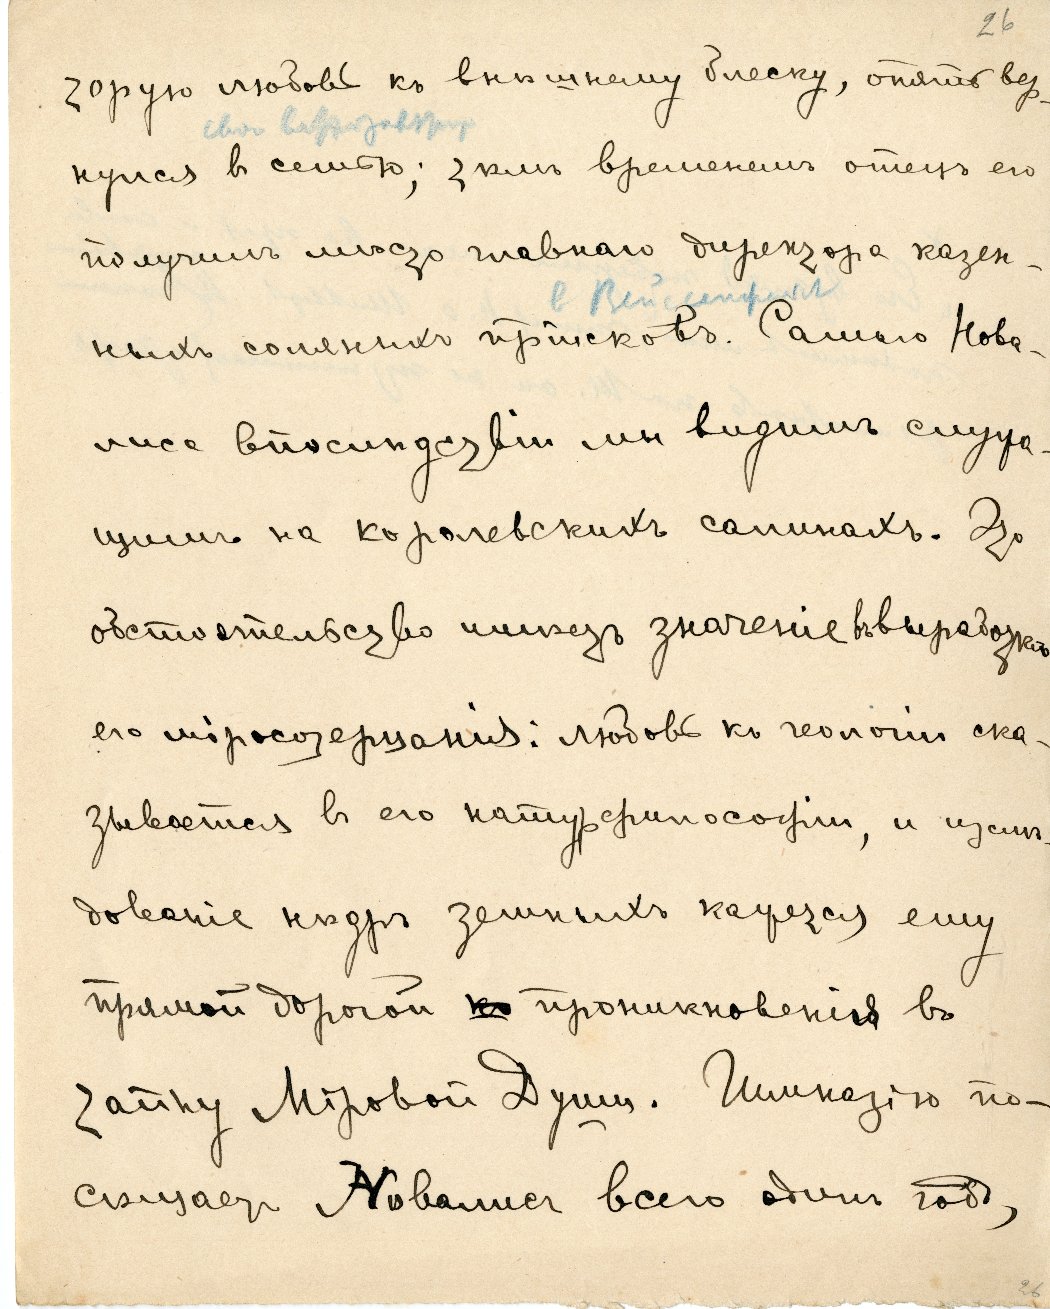 26
торую любовь къ внѣшнему блеску, опять вер-
нулся в семью; тѣмъ временемъ отецъ его
получилъ мѣсто главнаго директора казен-
в Вейссенфельс
ныхъ соляныхъ прiисковъ. Самого Нова-
лиса впослѣдствiи мы видимъ служа-
щимъ на королевскихъ салинахъ. Это
обстоятельство имѣетъ значенiе въ выработкѣ
его мiросозерцанiя: любовь къ геологiи ска-
зывается в его натурфилософiи, и изслѣ-
дованiе нѣдръ земныхъ кажется ему
прямой дорогой проникновенiя въ
тайну Мiровой Души. Гимназiю по-
сѣщаетъ Новалисъ всего одинъ годъ,
26